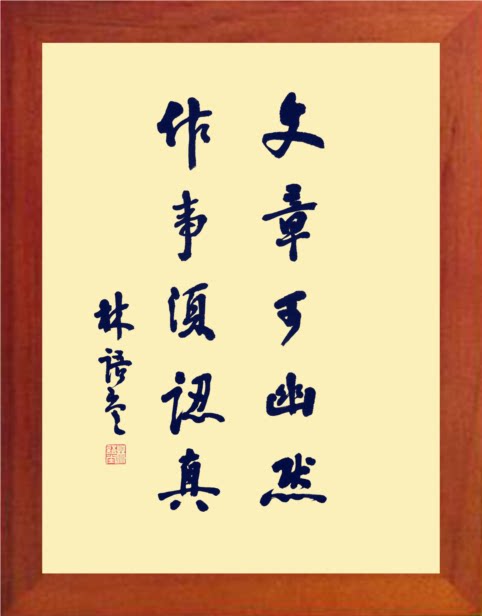 文章可幽默
作事須認真
林語堂